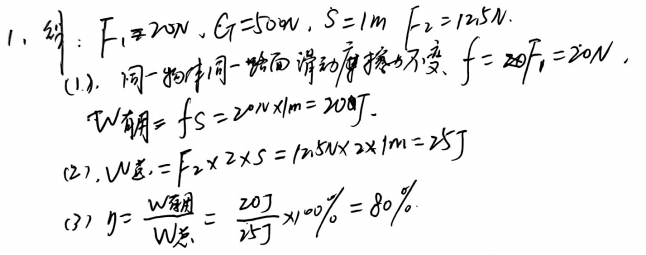 1、解: F₁=20N、G=500N, S=1m F₂=12.5N.
(1). 同一物体同一路面滑动摩擦力不变、f=F₁=20N,
W有用=fS=20N×1m=20J.
(2). W总=F₂×2×S=12.5N×2×1m=25J
(3) η=W有用/W总=20J/25J×100%=80%.